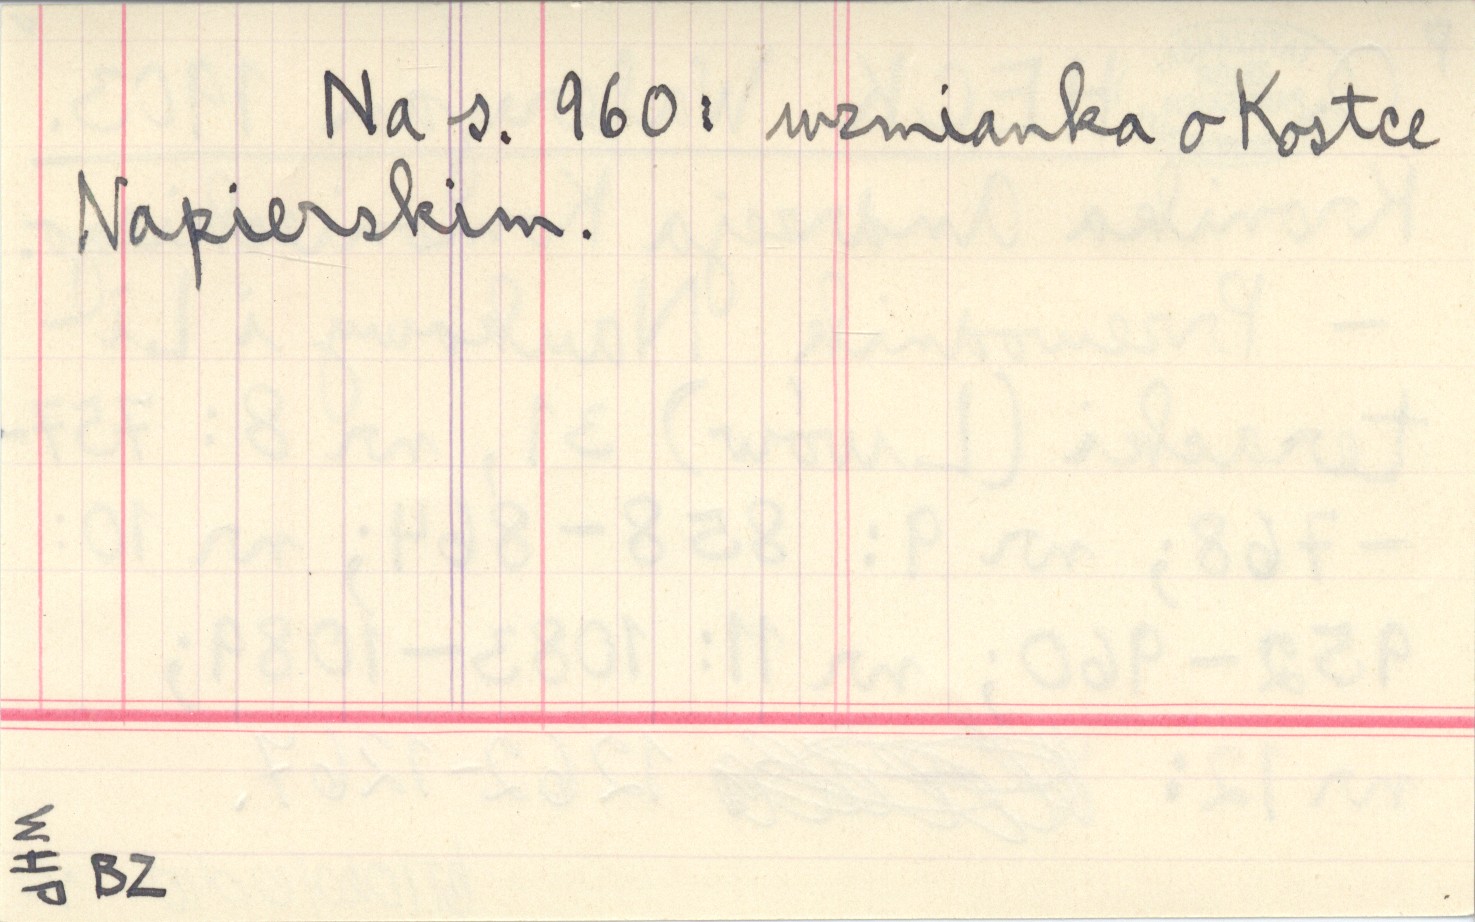 Na s. 960: wzmianka o Kostce
Napierskim.
WHP
BZ